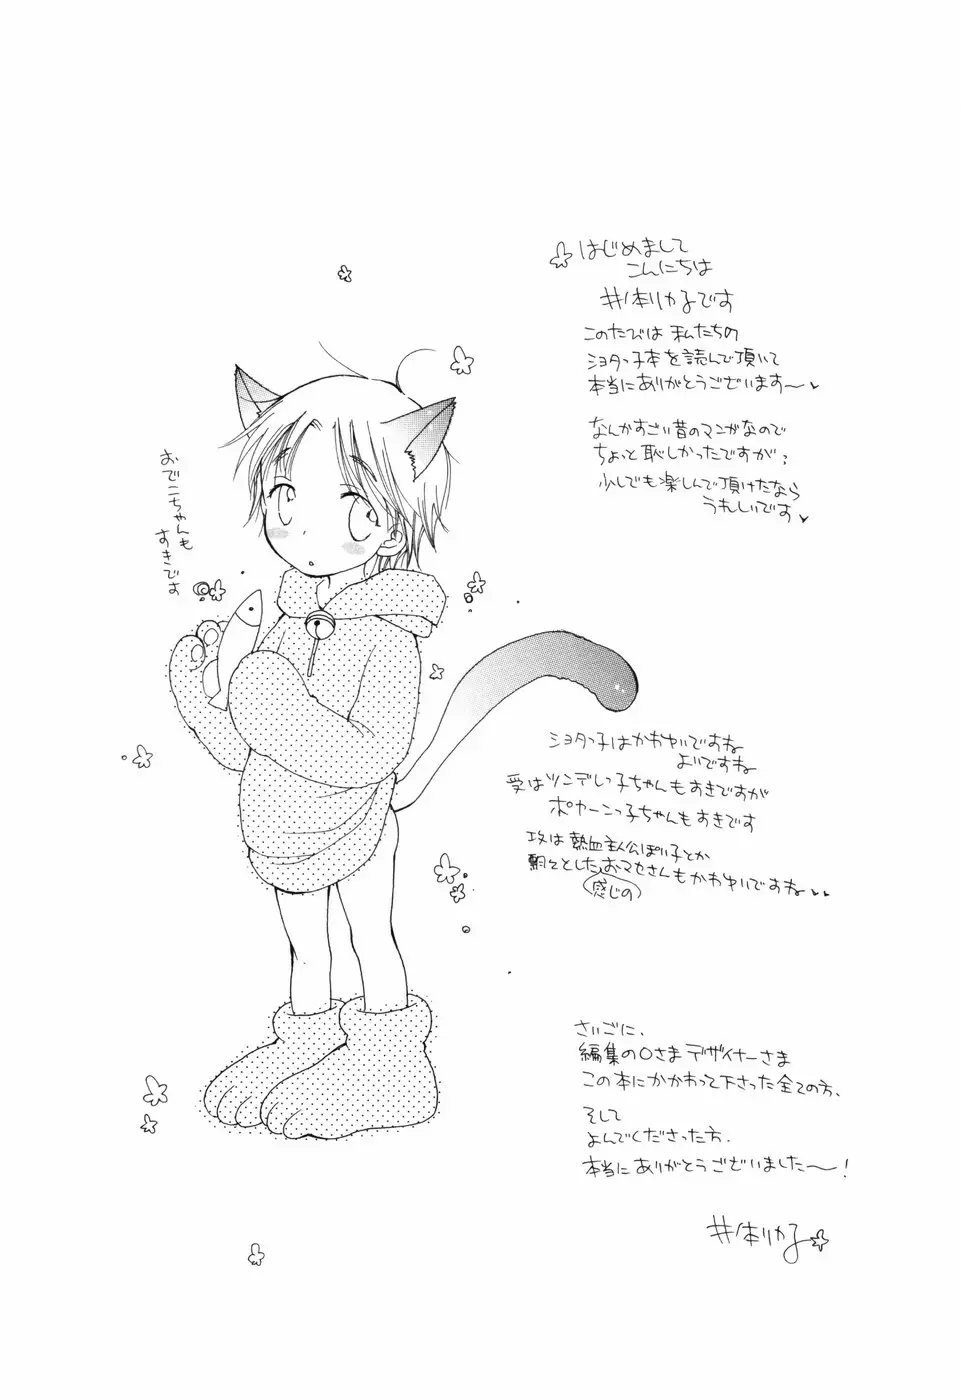 はじめまして
こんにちは
井ノ本リカ子です
このたびは私たちの
ショタっ子本を読んで頂いて
本当にありがとうございます〜♥
なんかすごい昔のマンガなので
ちょっと恥しかったですが？
少しでも楽しんで頂けたなら
うれしいです♥
おでこちゃんも
すきです
ショタっ子はかわゆいですね
よいですね
受はツンデレっ子ちゃんもすきですが
ポカーンっ子ちゃんもすきです
攻は熱血主人公ぽい子とか
とした感じのおマセさんもかわゆいですね♥♥
さいごに、
編集のOさまデザイナーさま
この本にかかわって下さった全ての方、
そして
よんでくださった方、
本当にありがとうございました〜！
井ノ本リカ子